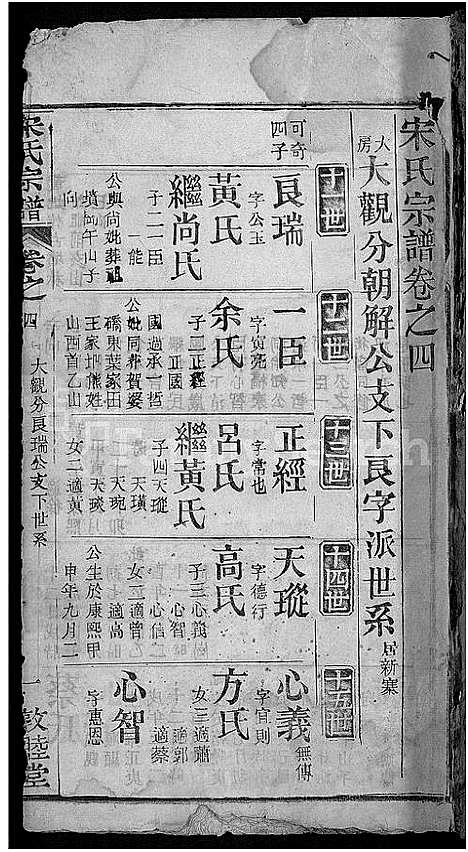 宋氏宗譜卷之四
大房大觀分朝解公支下良字派世系居新寨
十一世
十二世
十三世
十四世
十五世
可奇四子
良瑞
字公玉
黃氏
繼尚氏
子二一臣
一能
公與尚妣葬祖
墳𡶶午山子
向
一臣
字寅亮
余氏
子二正經
正國
國過承一哲
公妣同葬賀婆
橋東葉家田
王家坤熊姓
山酉首乙山
正經
字常也
呂氏
繼黃氏
子四天瑽
天璜
天琬
天琰
女二適黃
天瑽
字德行
高氏
子三心義
心智
心信
女二適曾
適高
公生於康熙甲
申年九月二
心義無傳
字宜則
方氏
女三適蕭
適郭
適蔡
心智
字惠恩
宋氏宗譜
卷之四
大觀分良瑞公支下世系
一
敦睦堂